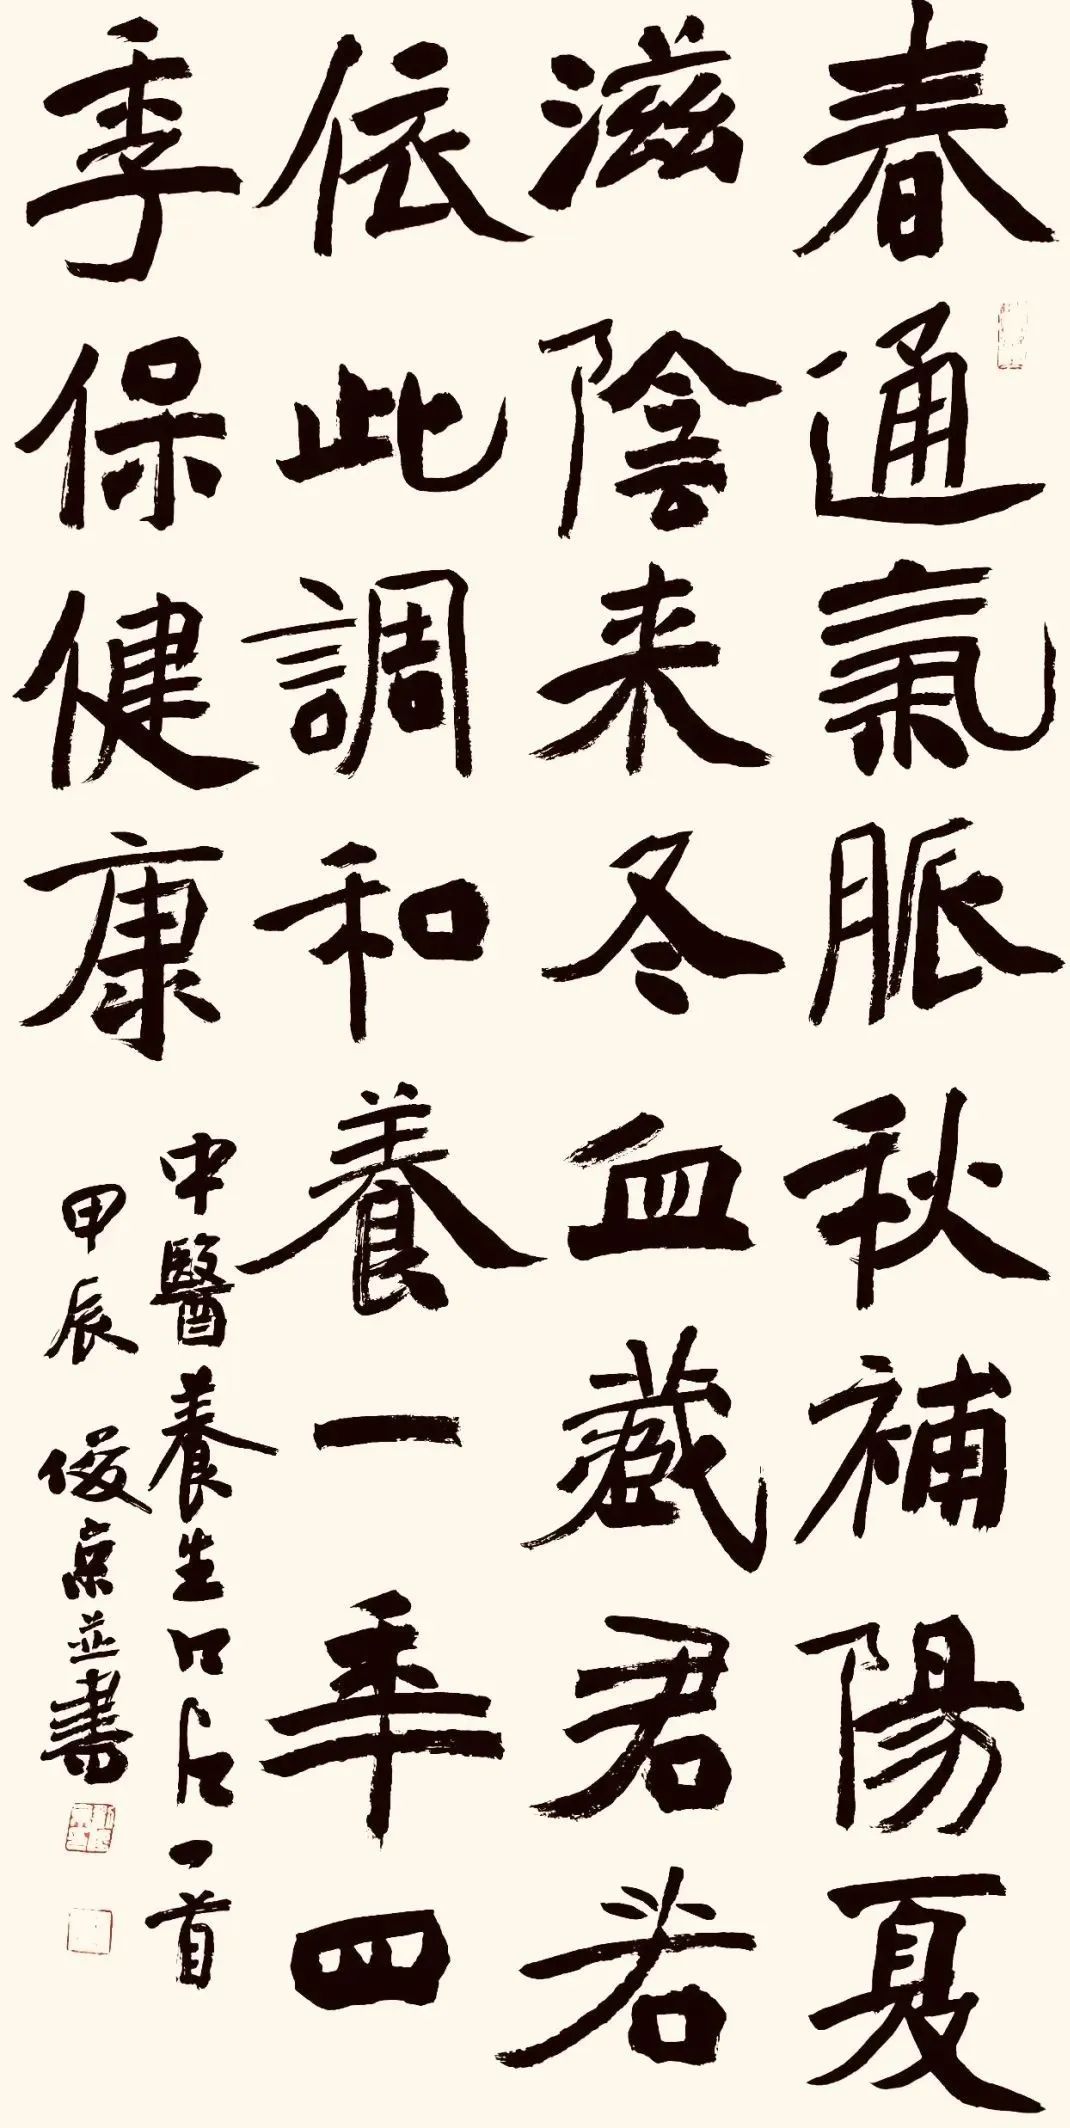 春通氣脈秋補陽夏
滋陰来冬血藏君若
依此調和養一年四
季保健康
中醫養生口占一首
甲辰俊京並書